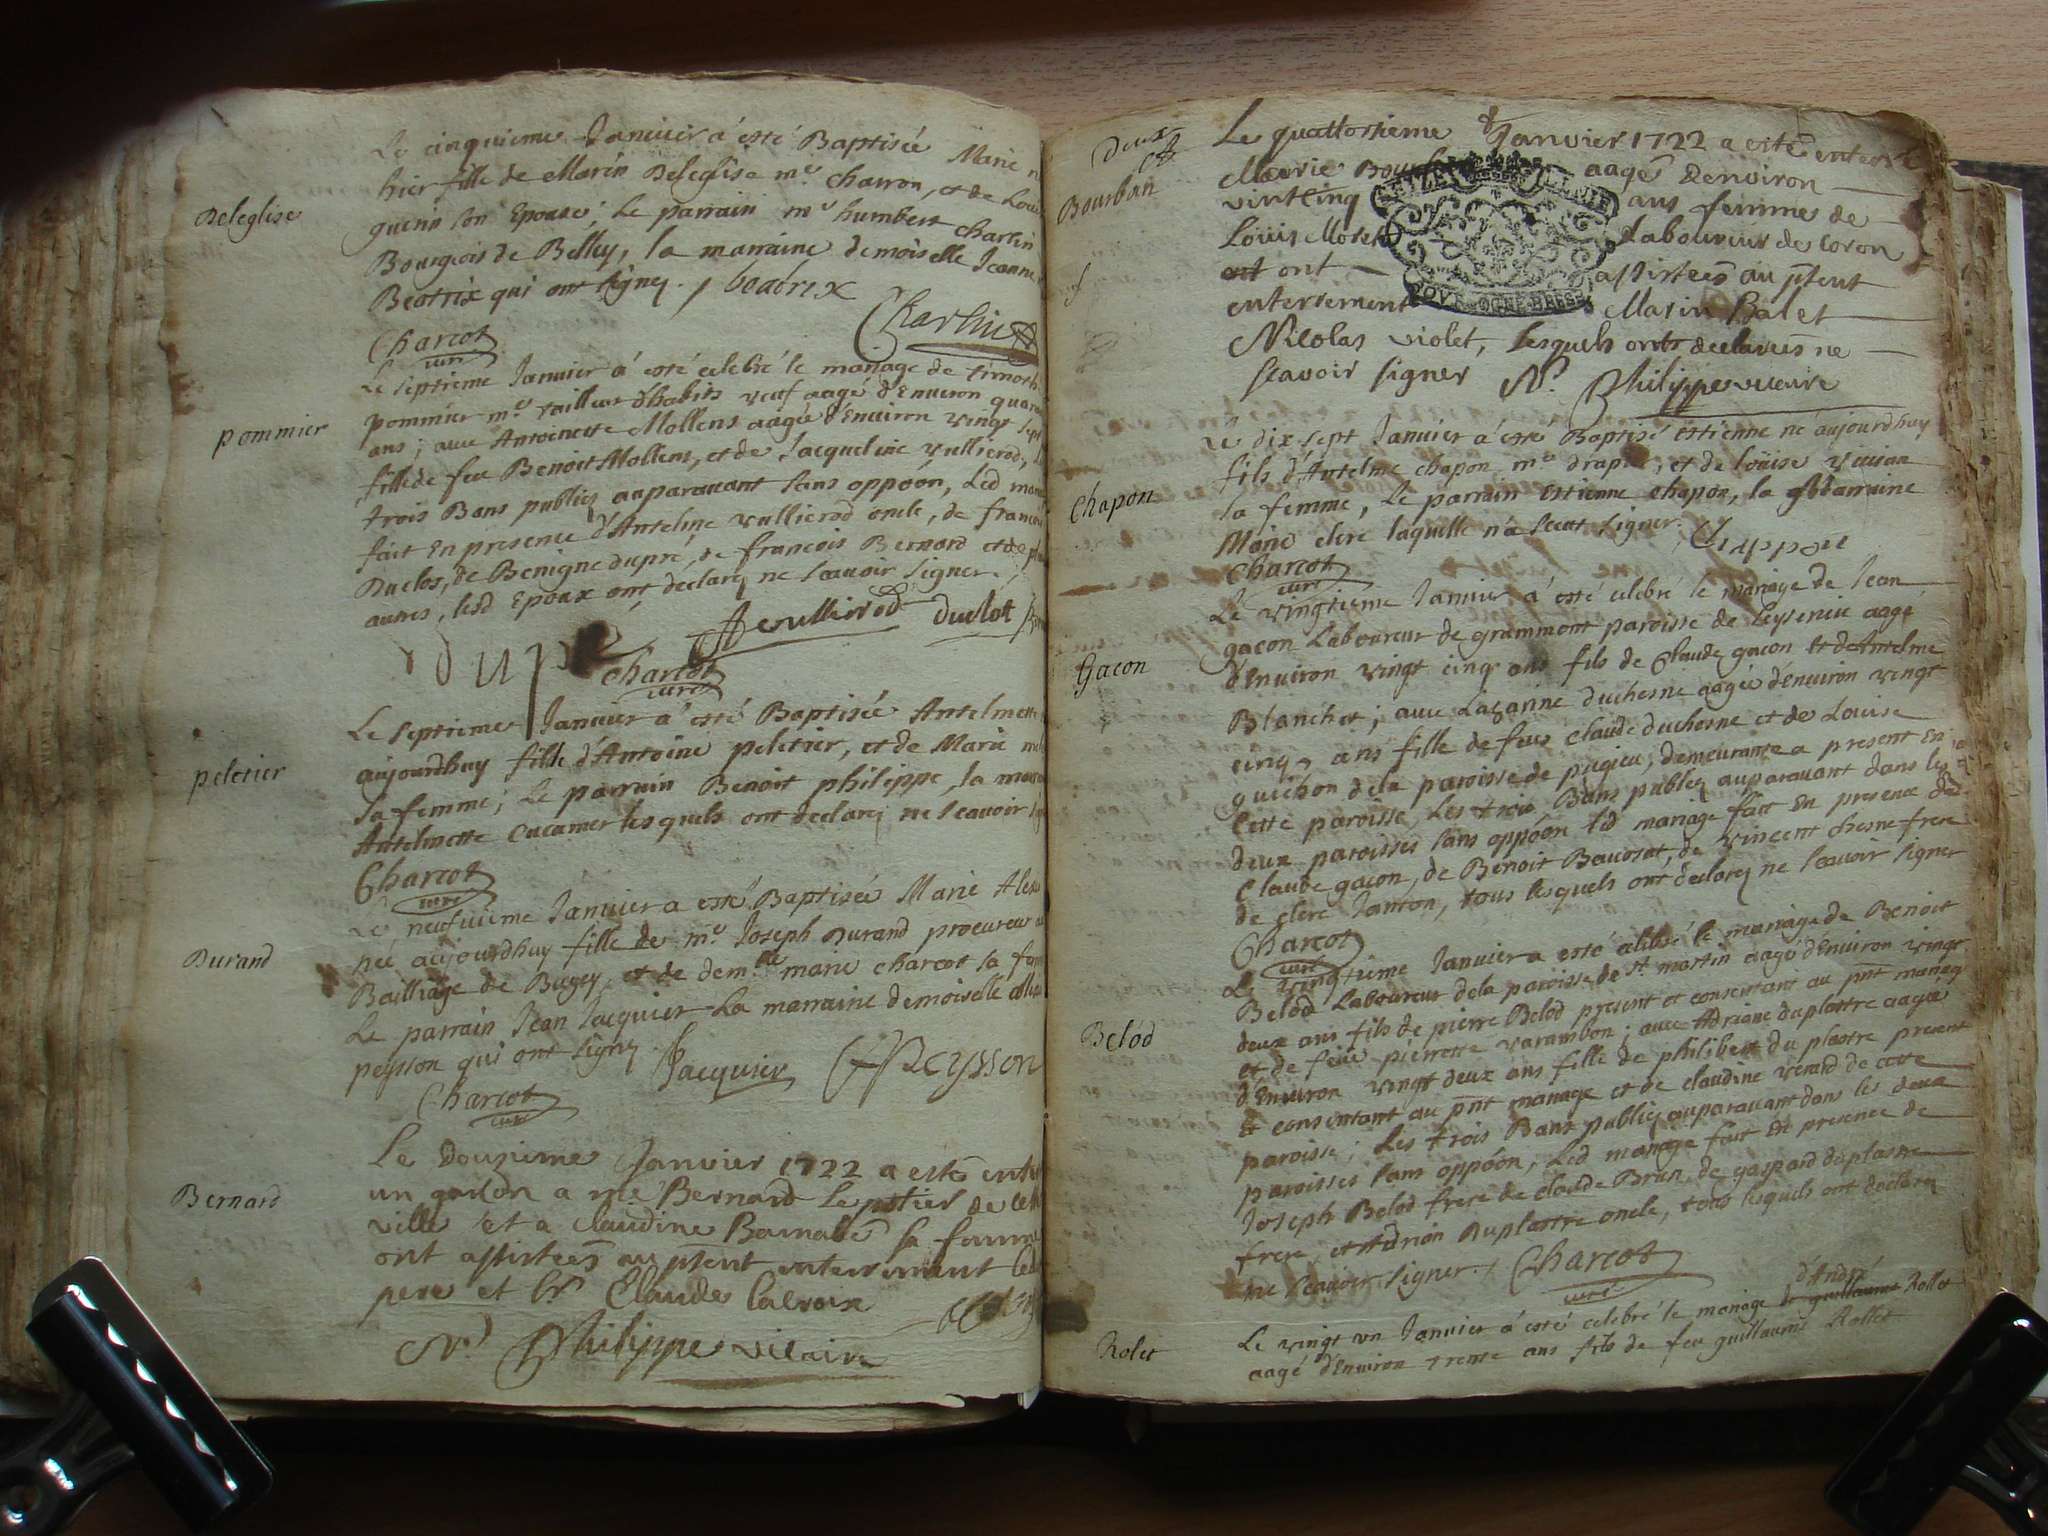 Le cinquieme Janvier á esté Baptisée Marie
hier fille de Marin Beleglise me. charron, et de
son Epouse; Le parrain mr humbert charlin
Beleglise
Bourgeois de Belley, la marraine demoiselle Jeanne
Beatrix qui ont signez. / beatrix
Charcot
curé
Charlin
Le septieme Janvier á esté celebré le mariage de
pommier me. tailleur d'habits veuf aagé d'Environ
pommier
ans; avec Antoinette Mollens aagée d'Environ vingt sept
fille de feu Benoit Mollens, et de Jacqueline vullierod,
trois Bans publiez auparavant sans oppóon, Led
fait En presence d'Antelme vullierod oncle, de
Duclos, de Benigne dupré, de francois Bernard et de
autres, lesd Epoux ont declarez ne scavoir signer.
A vullierod duclot
dup
Charcot
curé
Le septieme Janvier á esté Baptisée Antelmette
aujourdhuy fille d'Antoine peletier, et de Marie
peletier
sa femme; Le parrain Benoit philippe, la
Antelmette cucamer lesquels ont declarez ne scavoir
Charcot
curé
Le neufvieme Janvier a esté Baptisée Marie
née aujourdhuy fille de me. Joseph Durand procureur
Durand
Bailliage de Bugey, et de demlle marie charcot sa
Le parrain Jean Jacquier La marraine demoiselle
peysson qui ont signez
Jacquier Peysson
Charcot
curé
Le douzieme Janvier 1722 a esté
un garson a me Bernard Le potier de
Bernard
ville et a Claudine Barnabé sa
ont assistees au pñent enterrement
pere et Claude Lacroix
Philippe vicaire
Deux
Le quattorsieme Janvier 1722 a esté
Marie aagé denviron
Bourban
vintcinq ans femme de
Loüis Moret Laboureur de coron
ont ont assistees au pñent
enterrement Marin Balet
Nicolas violet, lesquels onts declarees ne
scavoir signer Philippe vicaire
Le dix sept Janvier á esté Baptisé estienne né aujourdhuy
fils d'Antelme chapon me drapier, et de loüise
Chapon
sa femme, Le parrain Estienne chapon, la marraine
Marie clerc laquelle n'a sceut signer. Chappon
Charcot
curé
Le vingtieme Janvier á esté celebré le mariage de Jean
gacon Laboureur de grammont paroisse de Ceyserieu aagé
Gacon
d'Environ vingt cinq ans fils de Claude gacon et de Antelme
Blanchet; avec Lazanne duchesne aagée d'Environ vingt
cinq ans fille de feus Claude duchesne et de Louise
guichon de la paroisse de pugieu, demeurante a present En
Cette paroisse, Les trois Bans publiez auparavant dans les
deux paroisses sans oppóon led mariage fait En presence dud
Claude gacon, de Benoit Baucosat, de vincent chesne frere
de clerc Janton, tous lesquels ont declarez ne scavoir signer
Charcot
curé
Le vingtieme Janvier a esté celebré le mariage de Benoit
Belod Laboureur de la paroisse de St. martin aagé d'Environ vingt
deux ans fils de pierre Belod present et consentant au pñt mariage
Belód
et de feüe pierrette varambon; avec Adriane duplastre aagée
d'Environ vingt deux ans fille de philibert du plastre present
& consentant au pñt mariage et de claudine verard de cette
paroisse; Les trois Bans publiez auparavant dans les deux
paroisses sans oppóon, Led mariage fait En presence de
Joseph Belod frere de claude Brun, de gaspard duplastre
frere, et Adrian Duplastre oncle, tous lesquels ont declarez
ne scavoir signer. / Charcot
curé
d'André
Le vingt un Janvier á esté celebré le mariage de guillaume Rollet
Rolet
aagé d'Environ trente ans fils de feu guillaume Rollet